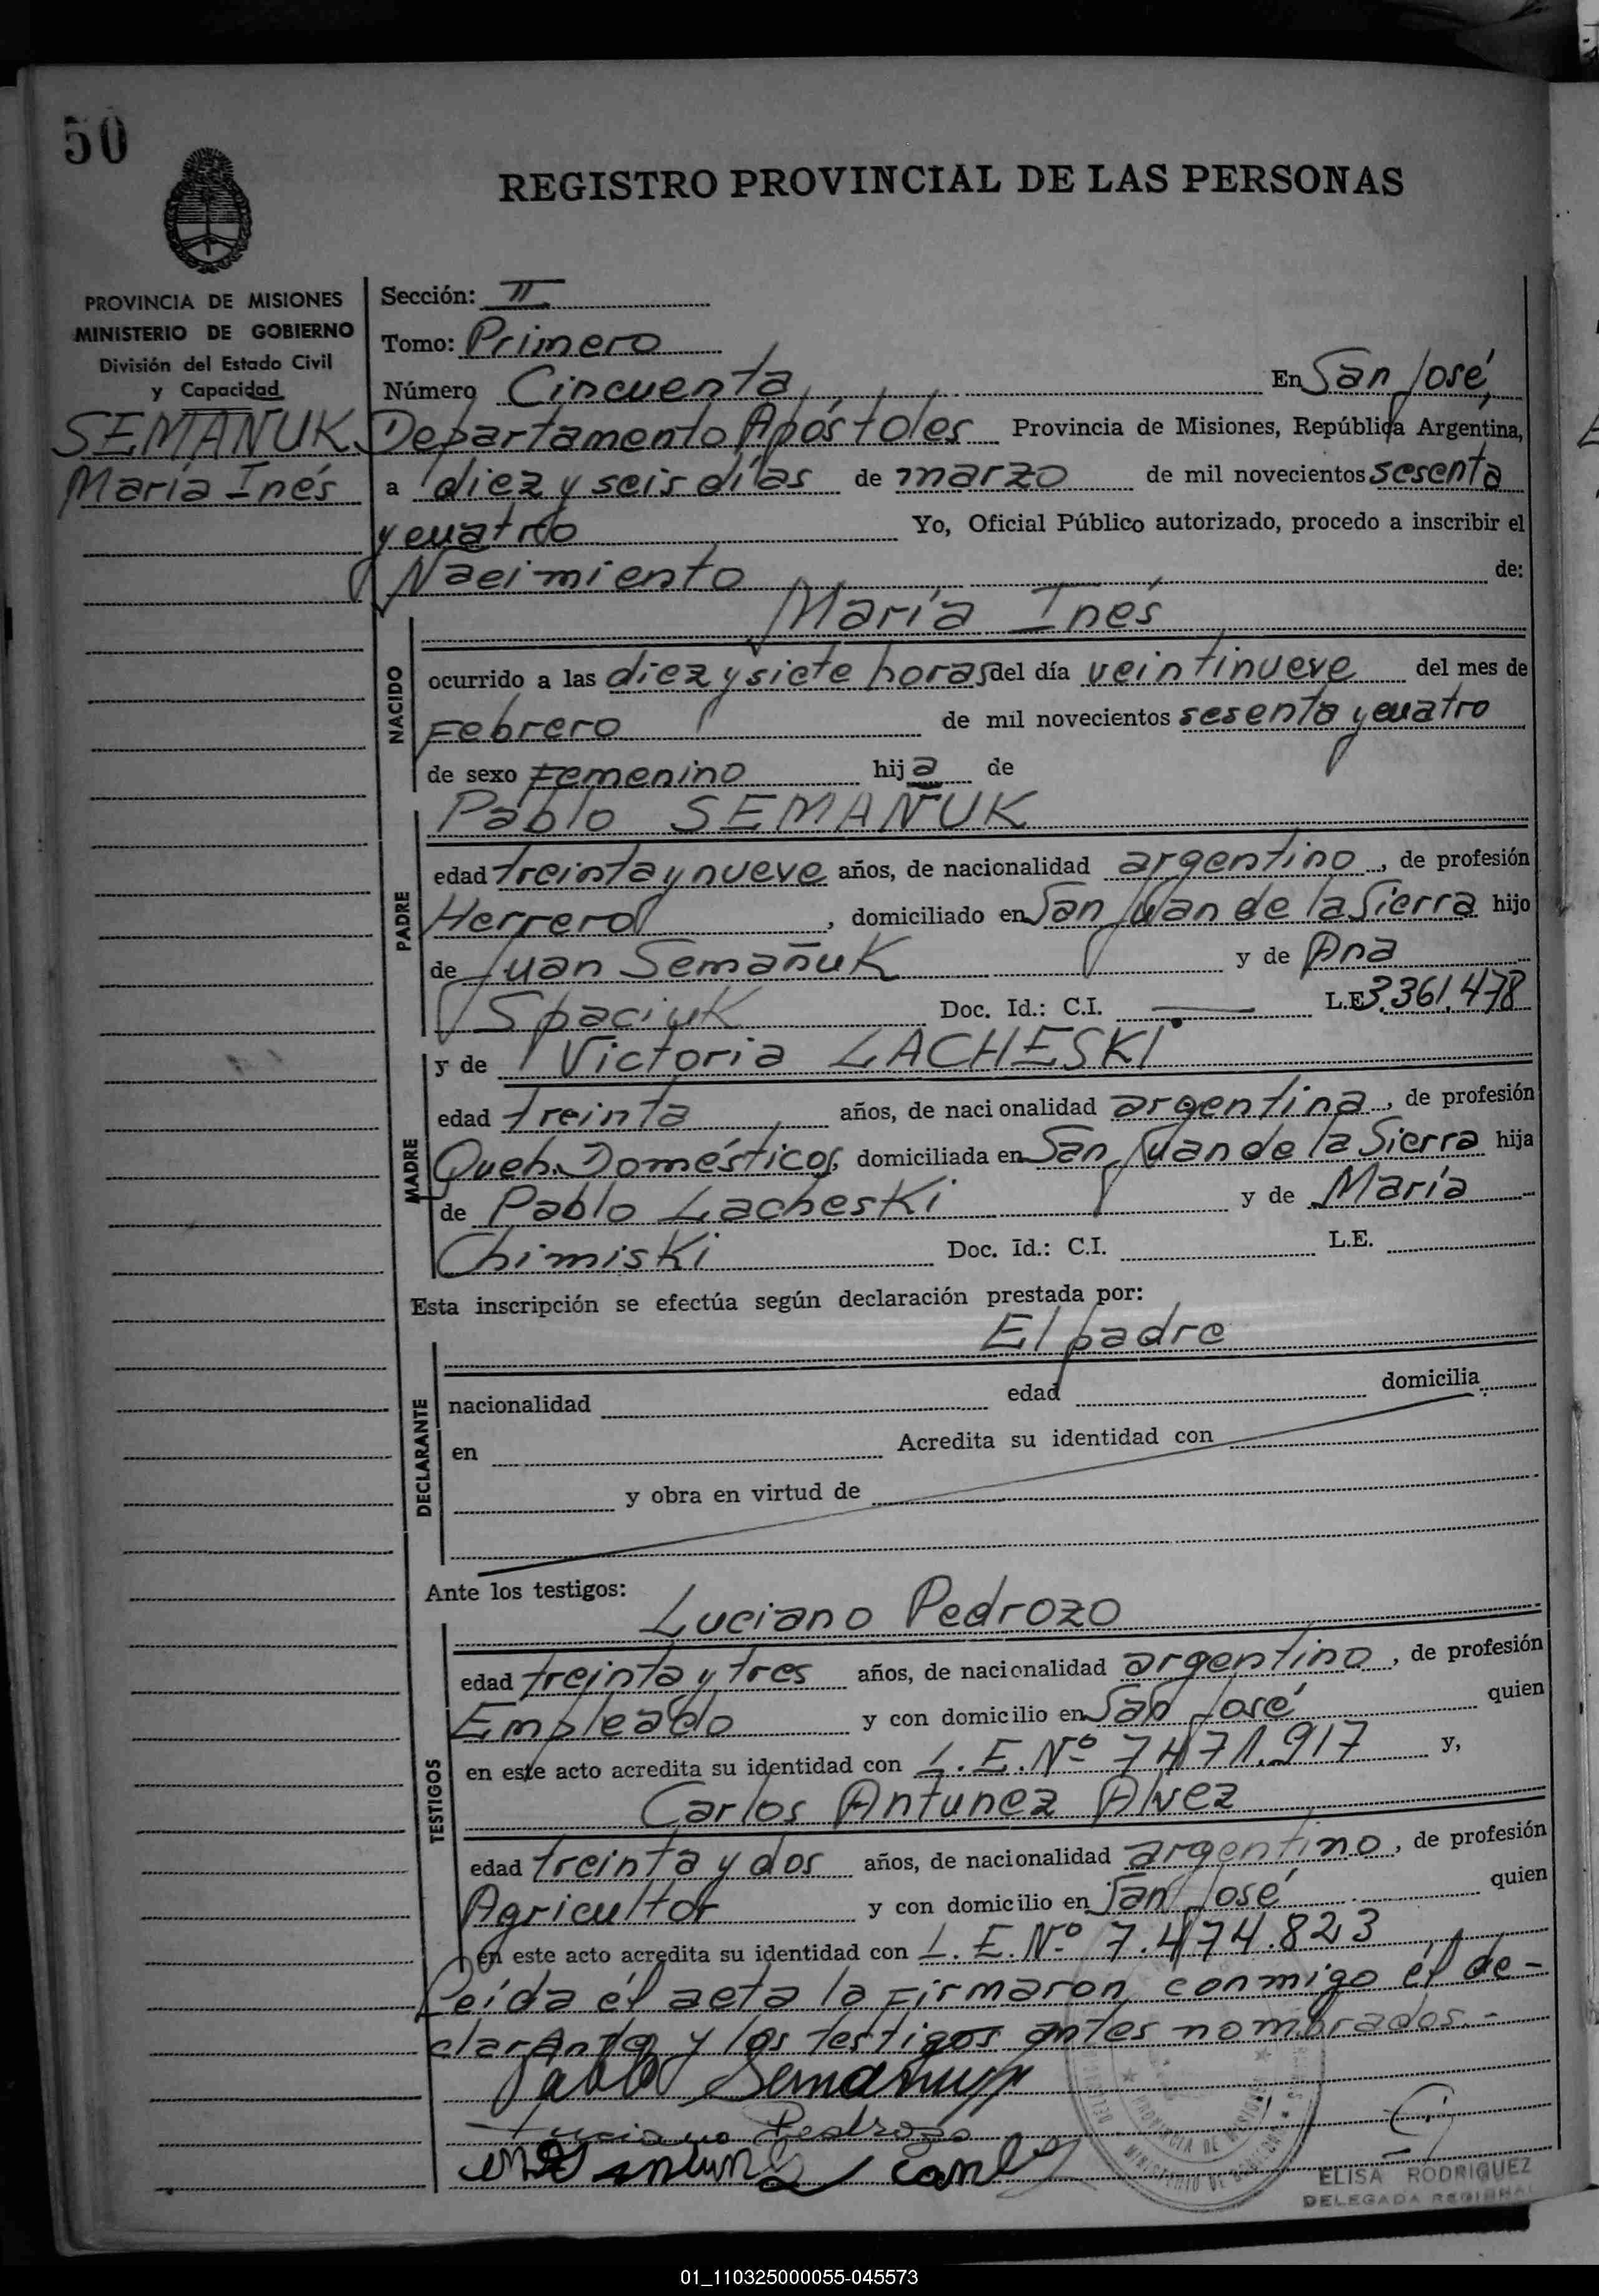 50
REGISTRO PROVINCIAL DE LAS PERSONAS
PROVINCIA DE MISIONES
MINISTERIO DE GOBIERNO
División del Estado Civil
y Capacidad
SEMAÑUK
María Inés
Sección: II
Tomo: Primero
Número Cincuenta, En San José,
Departamento Apóstoles Provincia de Misiones, República Argentina,
a diez y seis días de marzo de mil novecientos sesenta
y cuatro Yo, Oficial Público autorizado, procedo a inscribir el
Nacimiento de:
María Inés
NACIDO
ocurrido a las diez y siete horas del día veintinueve del mes de
Febrero de mil novecientos sesenta y cuatro
de sexo Femenino hija de
Pablo SEMAÑUK
PADRE
edad treinta y nueve años, de nacionalidad argentino, de profesión
Herrero, domiciliado en San Juan de la Sierra hijo
de Juan Semañuk y de Ana
Spaciuk Doc. Id.: C.I. — L.E. 3.361.478
y de Victoria LACHESKI
MADRE
edad treinta años, de nacionalidad argentina, de profesión
Queh. Domésticos, domiciliada en San Juan de la Sierra hija
de Pablo Lacheski y de María
Chimiski Doc. Id.: C.I. L.E.
Esta inscripción se efectúa según declaración prestada por:
El padre
DECLARANTE
nacionalidad edad domicilia
en Acredita su identidad con
y obra en virtud de
Ante los testigos:
Luciano Pedrozo
TESTIGOS
edad treinta y tres años, de nacionalidad argentino, de profesión
Empleado y con domicilio en San José quien
en este acto acredita su identidad con L.E. Nº 7471.917 y,
Carlos Antunez Alvez
edad treinta y dos años, de nacionalidad argentino, de profesión
Agricultor y con domicilio en San José quien
en este acto acredita su identidad con L.E. Nº 7.474.823
Leída él acta la Firmaron conmigo él de-
clarante y los testigos antes nombrados.-
Pablo Semañuk
Luciano Pedrozo
PROVINCIA DE MISIONES
MINISTERIO DE GOBIERNO
ELISA RODRIGUEZ
DELEGADA REGIONAL
01_110325000055-045573